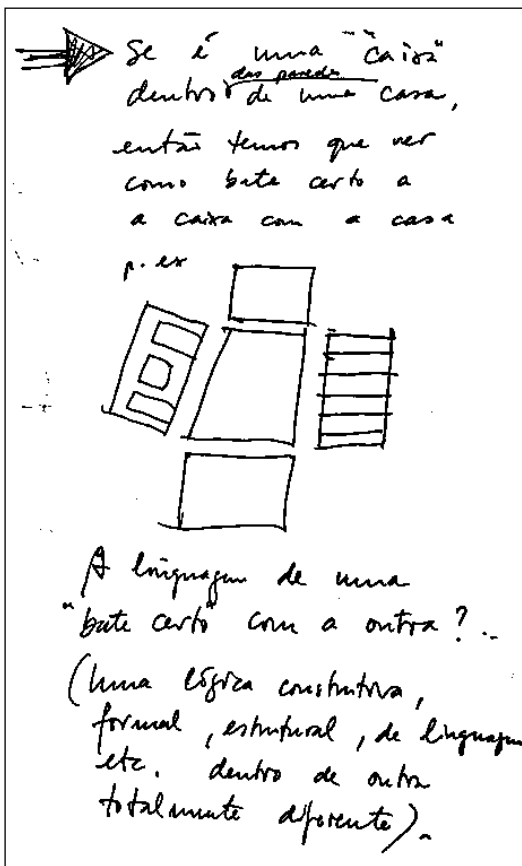 Se é uma "caixa"
das paredes
dentro de uma casa,
então temos que ver
como bate certo a
a caixa com a casa
p. ex
A linguagem de uma
"bate certo" com a outra?..
(Uma lógica construtiva,
formal, estrutural, de linguagem
etc. dentro de outra
totalmente diferente).